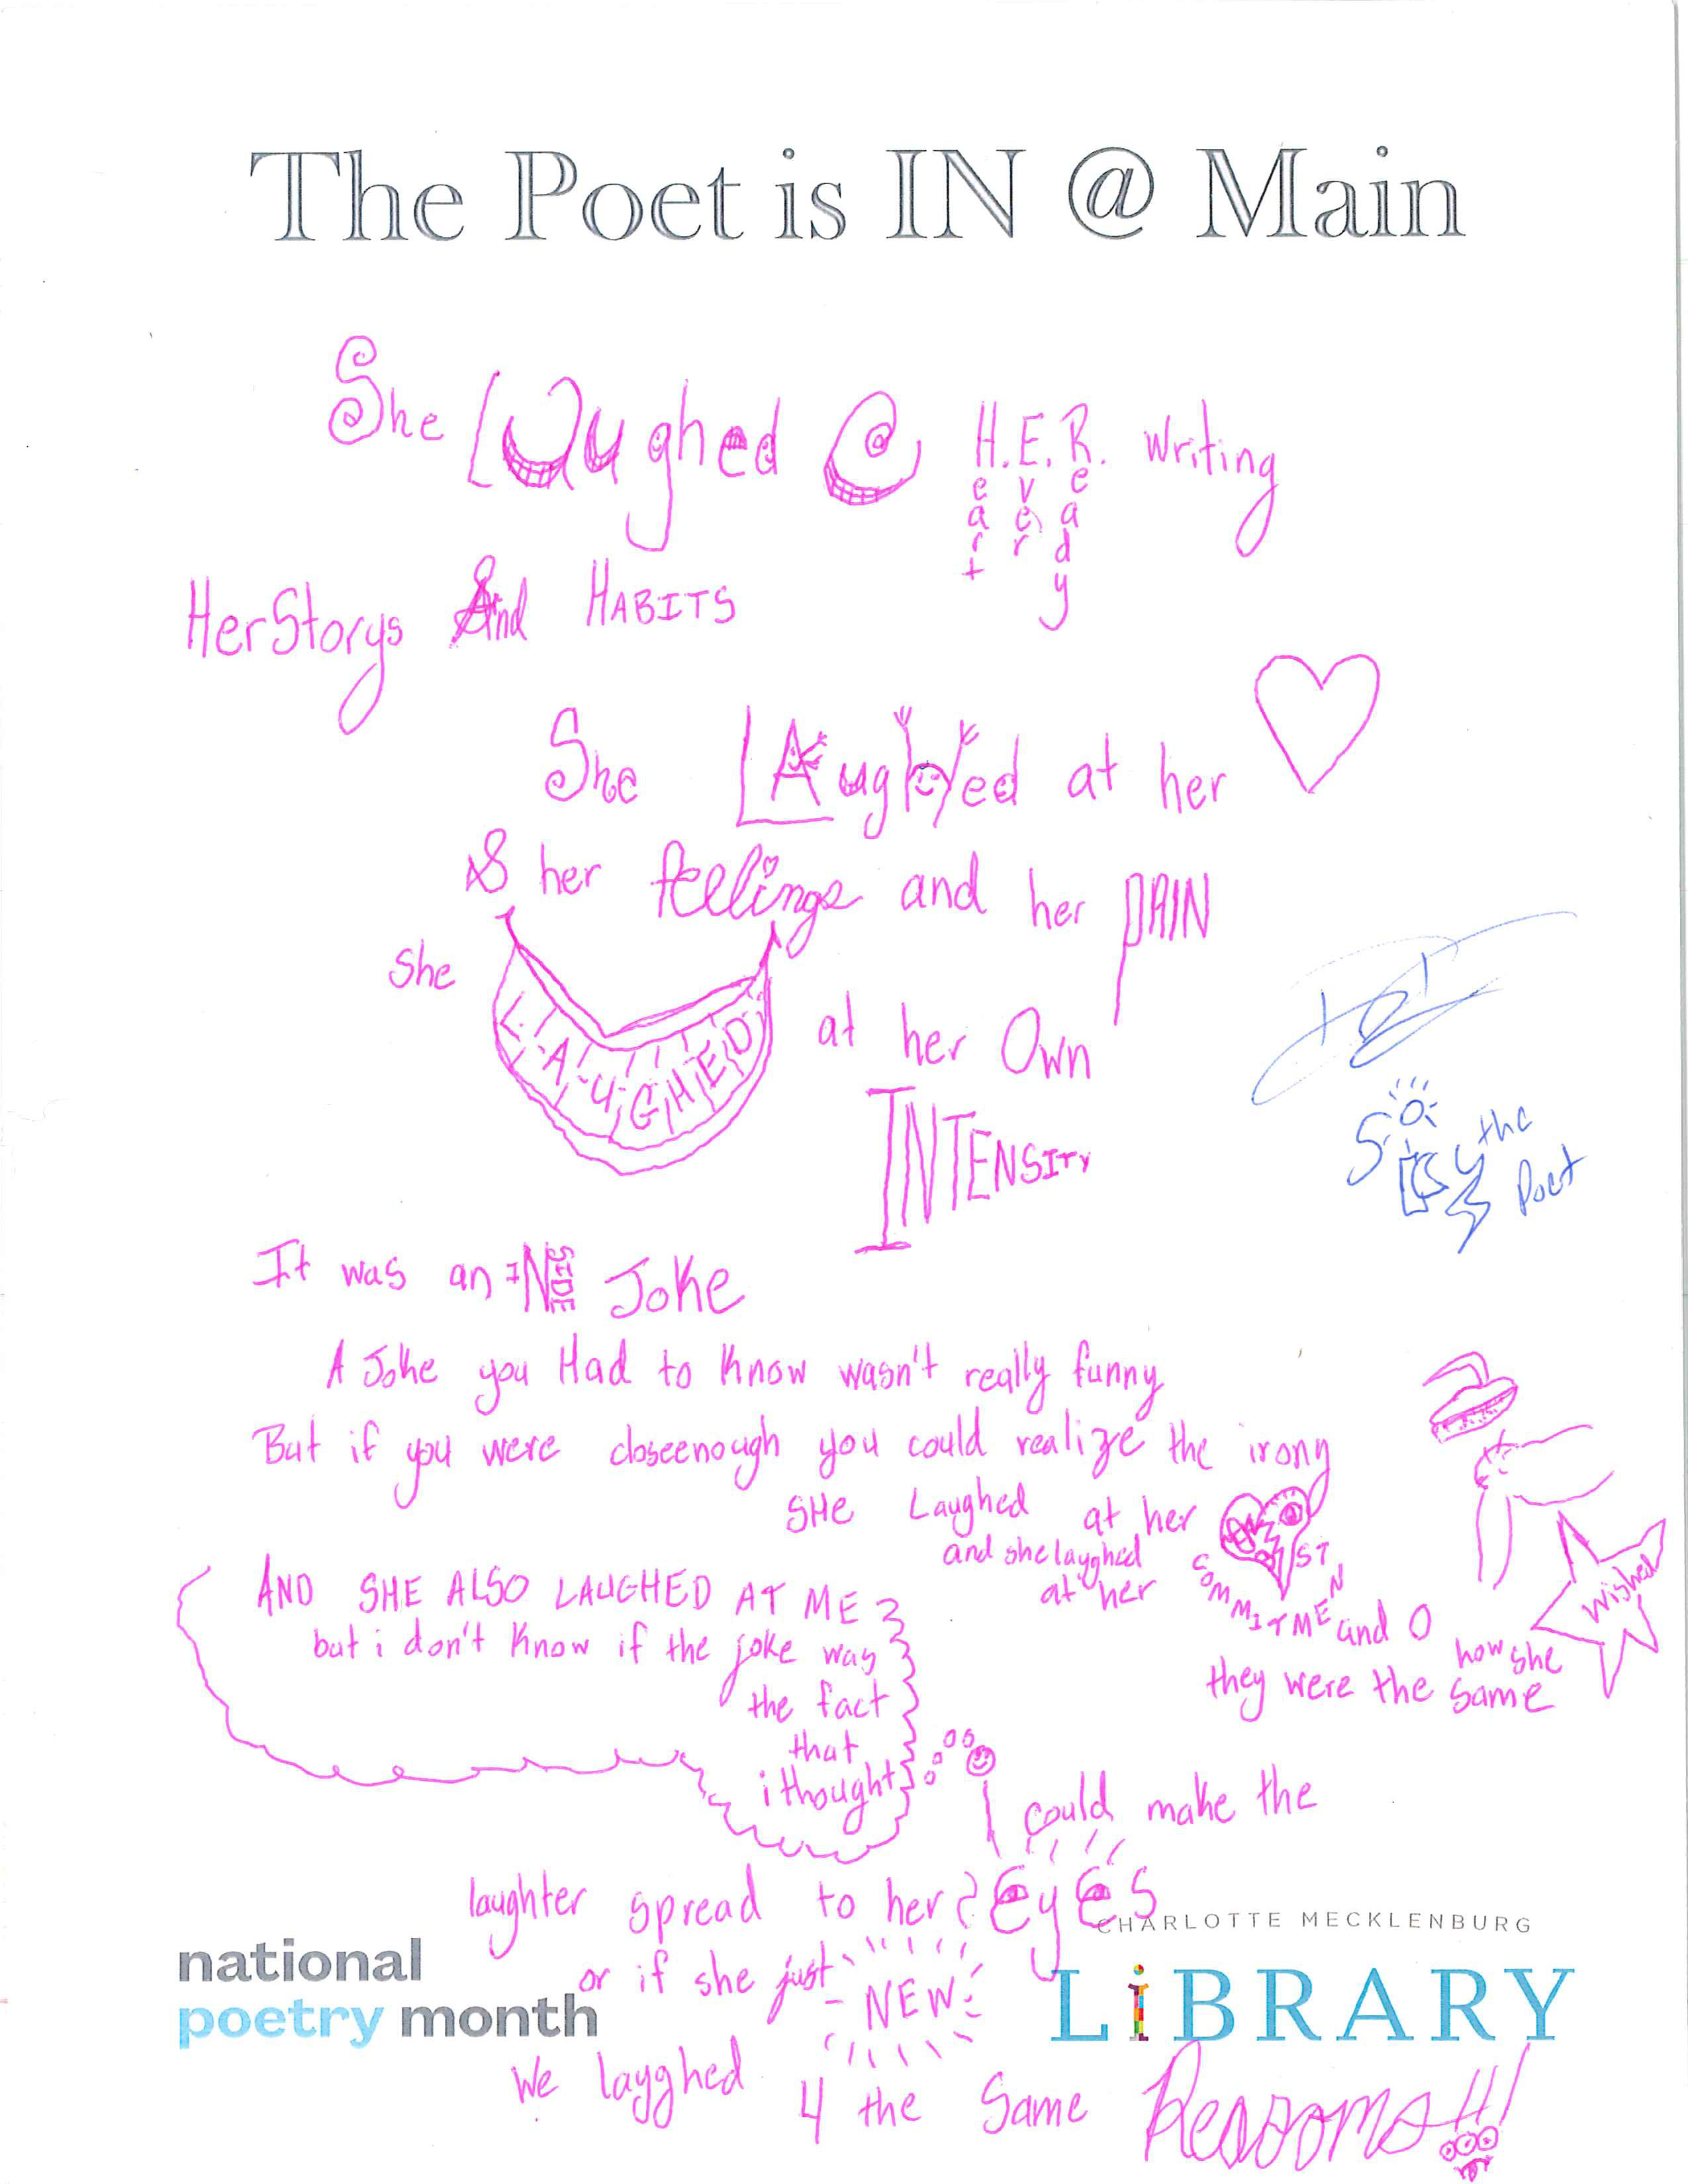 The Poet is IN @ Main
She Laughed @ H.E.R. Writing
Heart Ever Ready
HerStorys And HABITS
She LAughed at her
& her feelings and her PAIN
She LAUGHED at her Own
INTENSITY
the
Poet
It was an INSIDE Joke
A Joke you Had to Know wasn't really funny
But if you were closeenough you could realize the irony
SHe Laughed at her
and she layghed
at her COMMITMENT and O how she wished
they were the same
AND SHE ALSO LAUGHED AT ME
but i don't Know if the joke way
the fact
that
i thought
I could make the
laughter spread to her eyes
or if she just NEW
We layghed 4 the Same Reasons!!!
national
poetry month
CHARLOTTE MECKLENBURG
LiBRARY